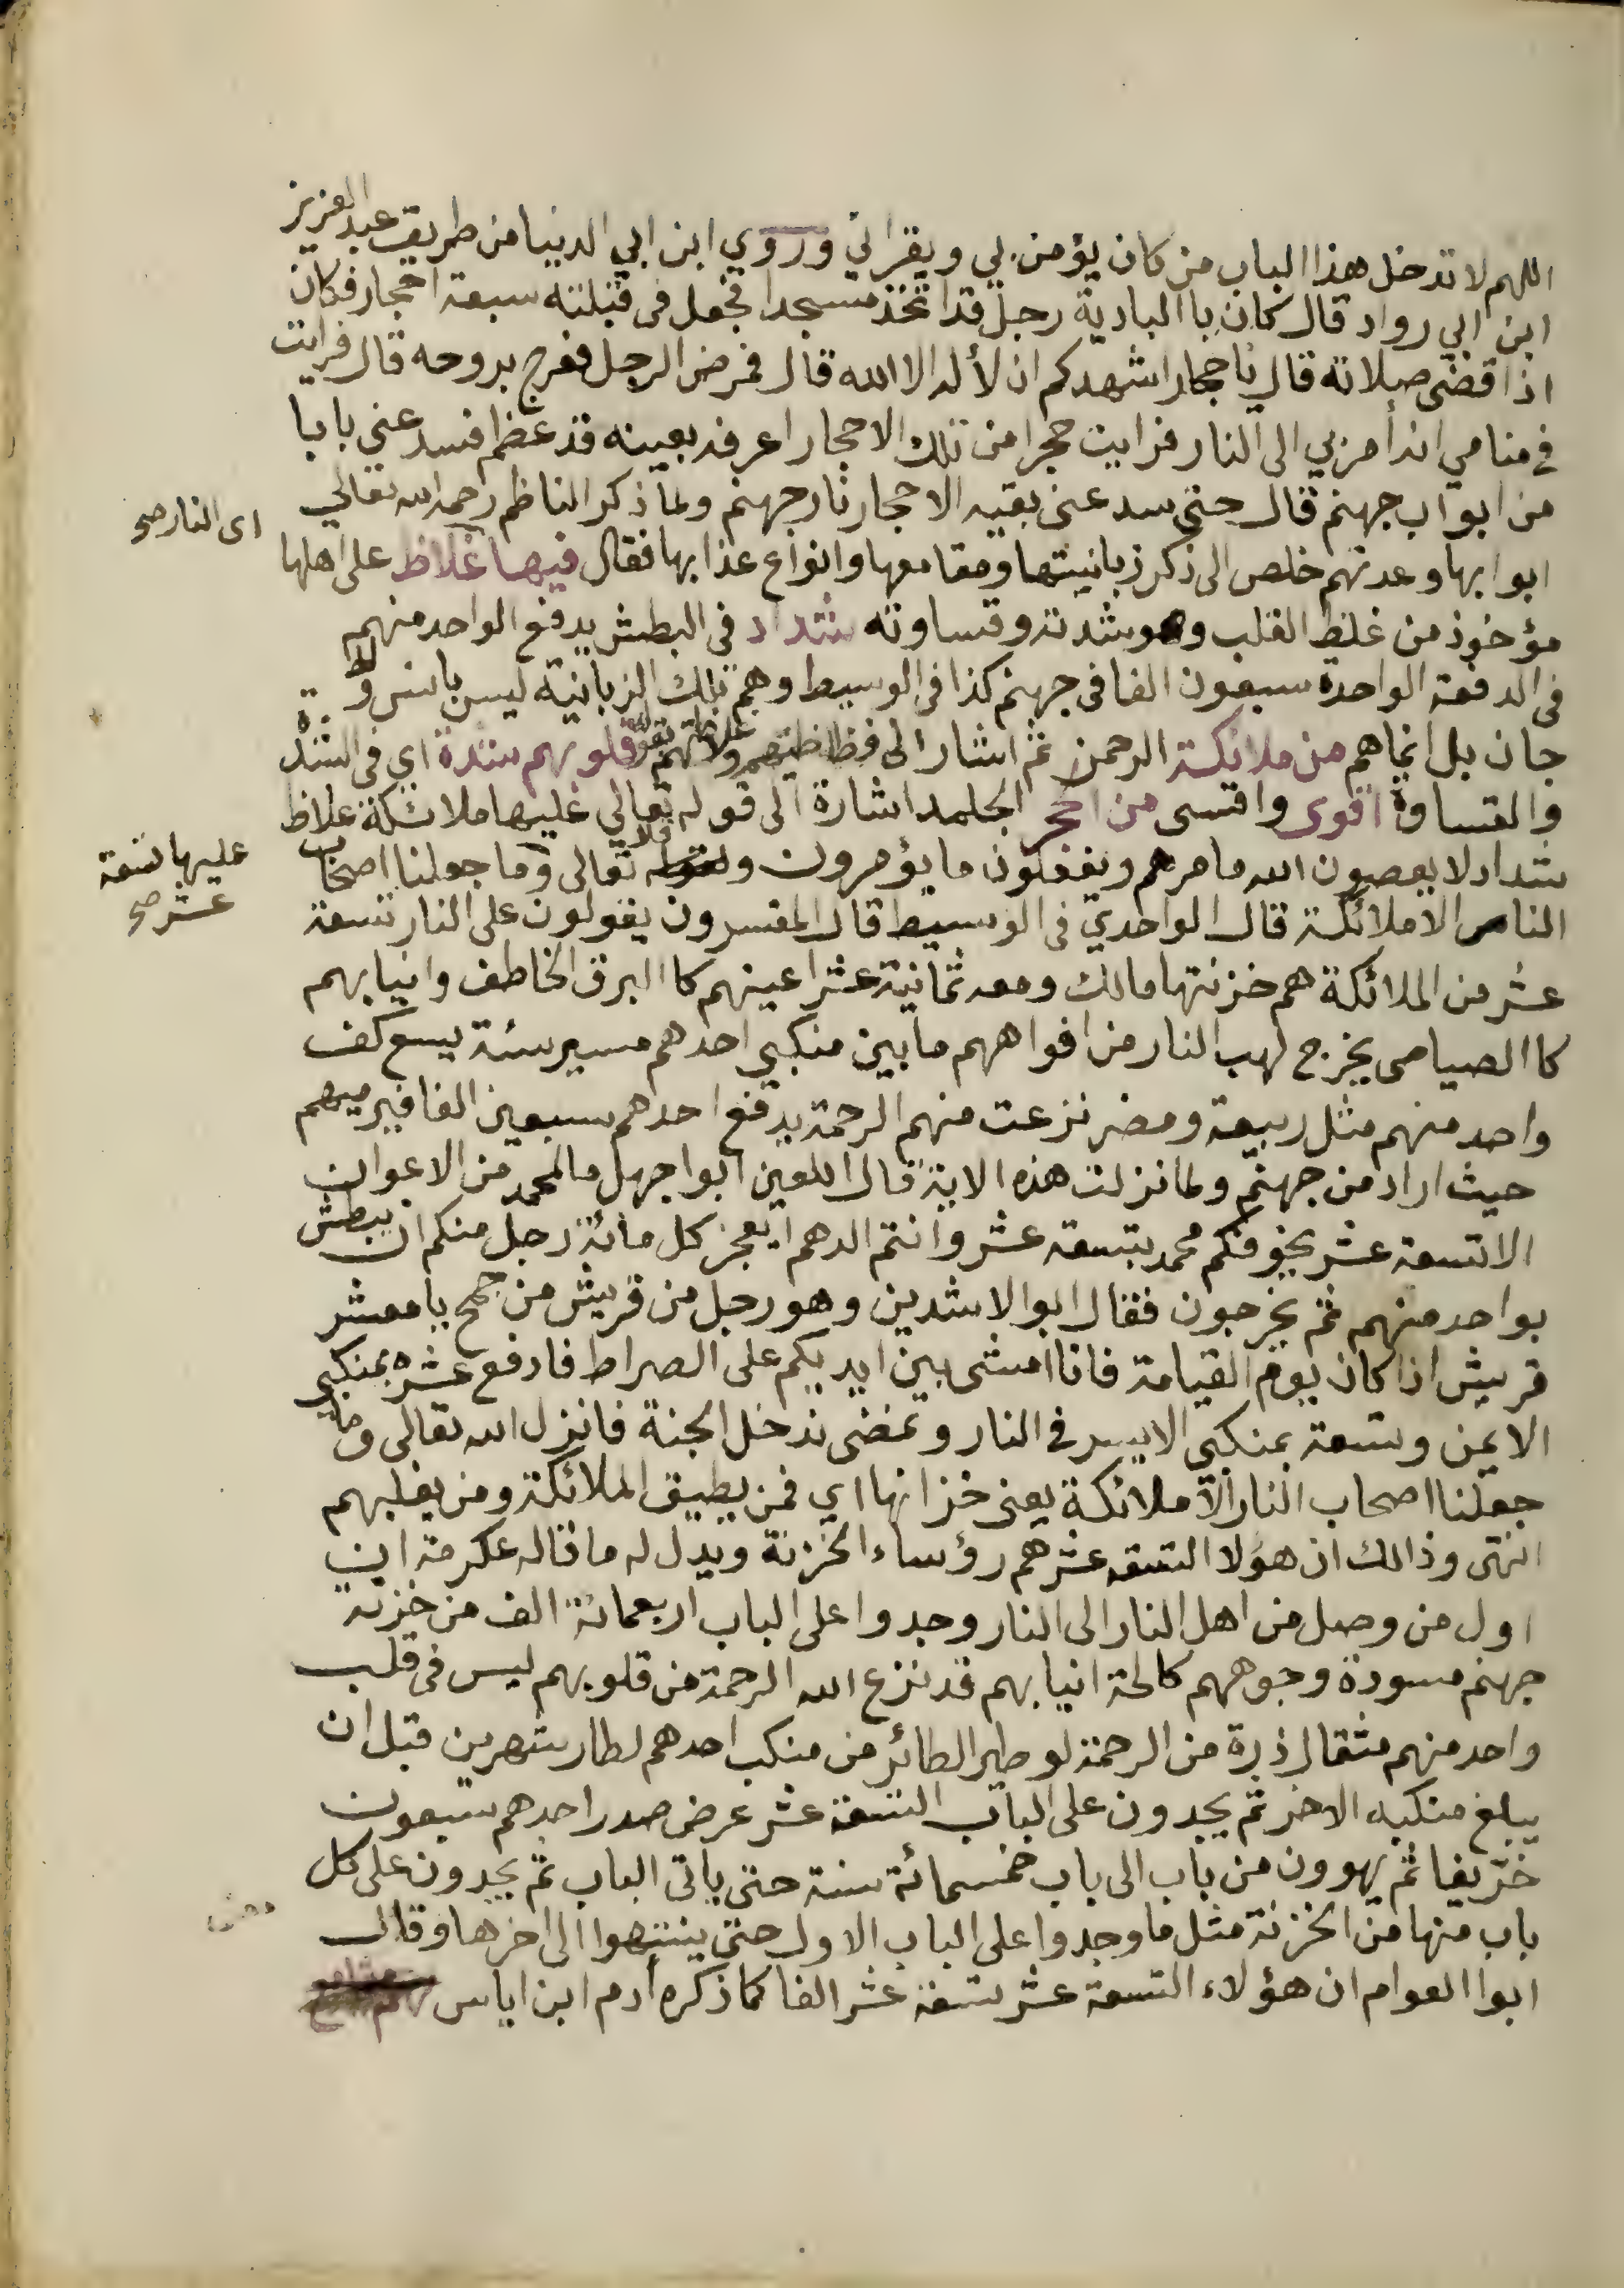 اللهم لا تدخل هذا الباب من كان يؤمن بي ويقراني وروي ابن ابي الدنيا من طريق عبد العزيز
ابن ابي رواد قال كان باالبادية رجل قد اتخذ مسجدا فجعل في قبلته سبعة احجار فكان
اذا قضى صلاته قال يا حجار اشهدكم ان لا اله الا الله قال فمرض الرجل فعرج بروحه قال فرايت
في منامي انه أمر بي الى النار فرايت حجرا من تلك الاحجار اعرفه بعينه قد عظم فسد عني بابا
من ابواب جهنم قال حتى سد عني بقية الاحجار نار جهنم ولما ذكر الناظم رحمه الله تعالى
اى النار صح
ابوابها وعدتهم خلص الى ذكر زبانيتها ومقامعها وانواع عذابها فقال فيها غلاظ على اهلها
مؤخوذ من غلظ القلب وهو شدته وقساوته شداد في البطش يدفع الواحد منهم
في الدفعة الواحدة سبعون الفا في جهنم كذا في الوسيط وهم تلك الزبانية ليس بانس ولا
جان بل انما هم من ملائكة الرحمن ثم اشار الى فظاظتهم وغلاظتهم بقوله قلوبهم شدة اي في الشدة
والقساوة اقوى واقسى من احجر الجلمد اشارة الى قوله تعالي عليها ملائكة غلاظ
شداد لا يعصون الله ما مرهم ويفعلون ما يؤمرون وقال تعالى وما جعلنا اصحاب
عليها تسعة
عشر صح
النار الا ملائكة قال الواحدي في الوسيط قال المفسرون يقولون على النار تسعة
عشر من الملائكة هم خزنتها مالك ومعه ثمانية عشر اعينهم كا البرق الخاطف وانيابهم
كا الصياصى يخرج لهب النار من افواههم ما بين منكبي احدهم مسير سنة يسع كف
واحد منهم مثل ربيعة ومضر نزعت منهم الرحمة يدفع احدهم سبعين الفا فيرميهم
حيث اراد من جهنم ولما نزلت هذه الاية قال اللعين ابوا جهل ما لمحمد من الاعوان
الا تسعة عشر يخوفكم محمد بتسعة عشر وانتم الدهم ايعجز كل مائة رجل منكم ان يبطش
بواحد منهم ثم يخرجون فقال ابوا الاشدين وهو رجل من قريش من جمح يا معشر
قريش اذا كان يوم القيامة فانا امشى بين ايديكم على الصراط فادفع عشرة بمنكبي
الايمن وتسعة بمنكبي الايسر في النار ونمضى ندخل الجنة فانزل الله تعالى وما
جعلنا اصحاب النار الا ملائكة يعني خزانها اي فمن يطيق الملائكة ومن يغلبهم
انتهى وذالك ان هؤلا التسعة عشر هم رؤساء الخزنة ويدل له ما قاله عكرمة ان
اول من وصل من اهل النار الى النار وجدوا على الباب اربعمائة الف من خزنة
جهنم مسودة وجوههم كالحة انيابهم قد نزع الله الرحمة من قلوبهم ليس في قلب
واحد منهم مثقال ذرة من الرحمة لو طير الطائر من منكب احدهم لطار شهرين قبل ان
يبلغ منكبه الاخر ثم يجدون على الباب التسعة عشر عرض صدر احدهم سبعون
خريفا ثم يهوون من باب الى باب خمسمائة سنة حتى ياتى الباب ثم يجدون على كل
باب منها من الخزنة مثل ما وجدوا على الباب الاول حتى ينتهوا الى اخرها وقال
ابوا العوام ان هؤلاء التسعة عشر تسعة عشر الفا كما ذكره أدم ابن اياس